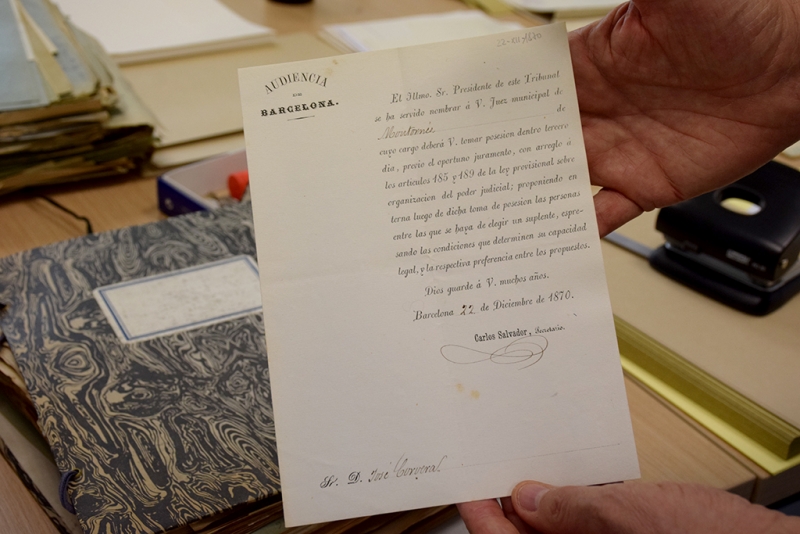 22-XII-1870
AUDIENCIA
DE
BARCELONA.
El Illmo. Sr. Presidente de este Tribunal
se ha servido nombrar á V. Juez municipal de
de
cuyo cargo deberá V. tomar posesion dentro tercero
dia, prévio el oportuno juramento, con arreglo á
los artículos 185 y 189 de la ley provisional sobre
organizacion del poder judicial; proponiendo en
terna luego de dicha toma de posesion las personas
entre las que se haya de elegir un suplente, espre-
sando las condiciones que determinen su capacidad
legal, y la respectiva preferencia entre los propuestos.
Dios guarde á V. muchos años.
Barcelona 22 de Diciembre de 1870.
Carlos Salvador, Secretario.
Sr. D. José